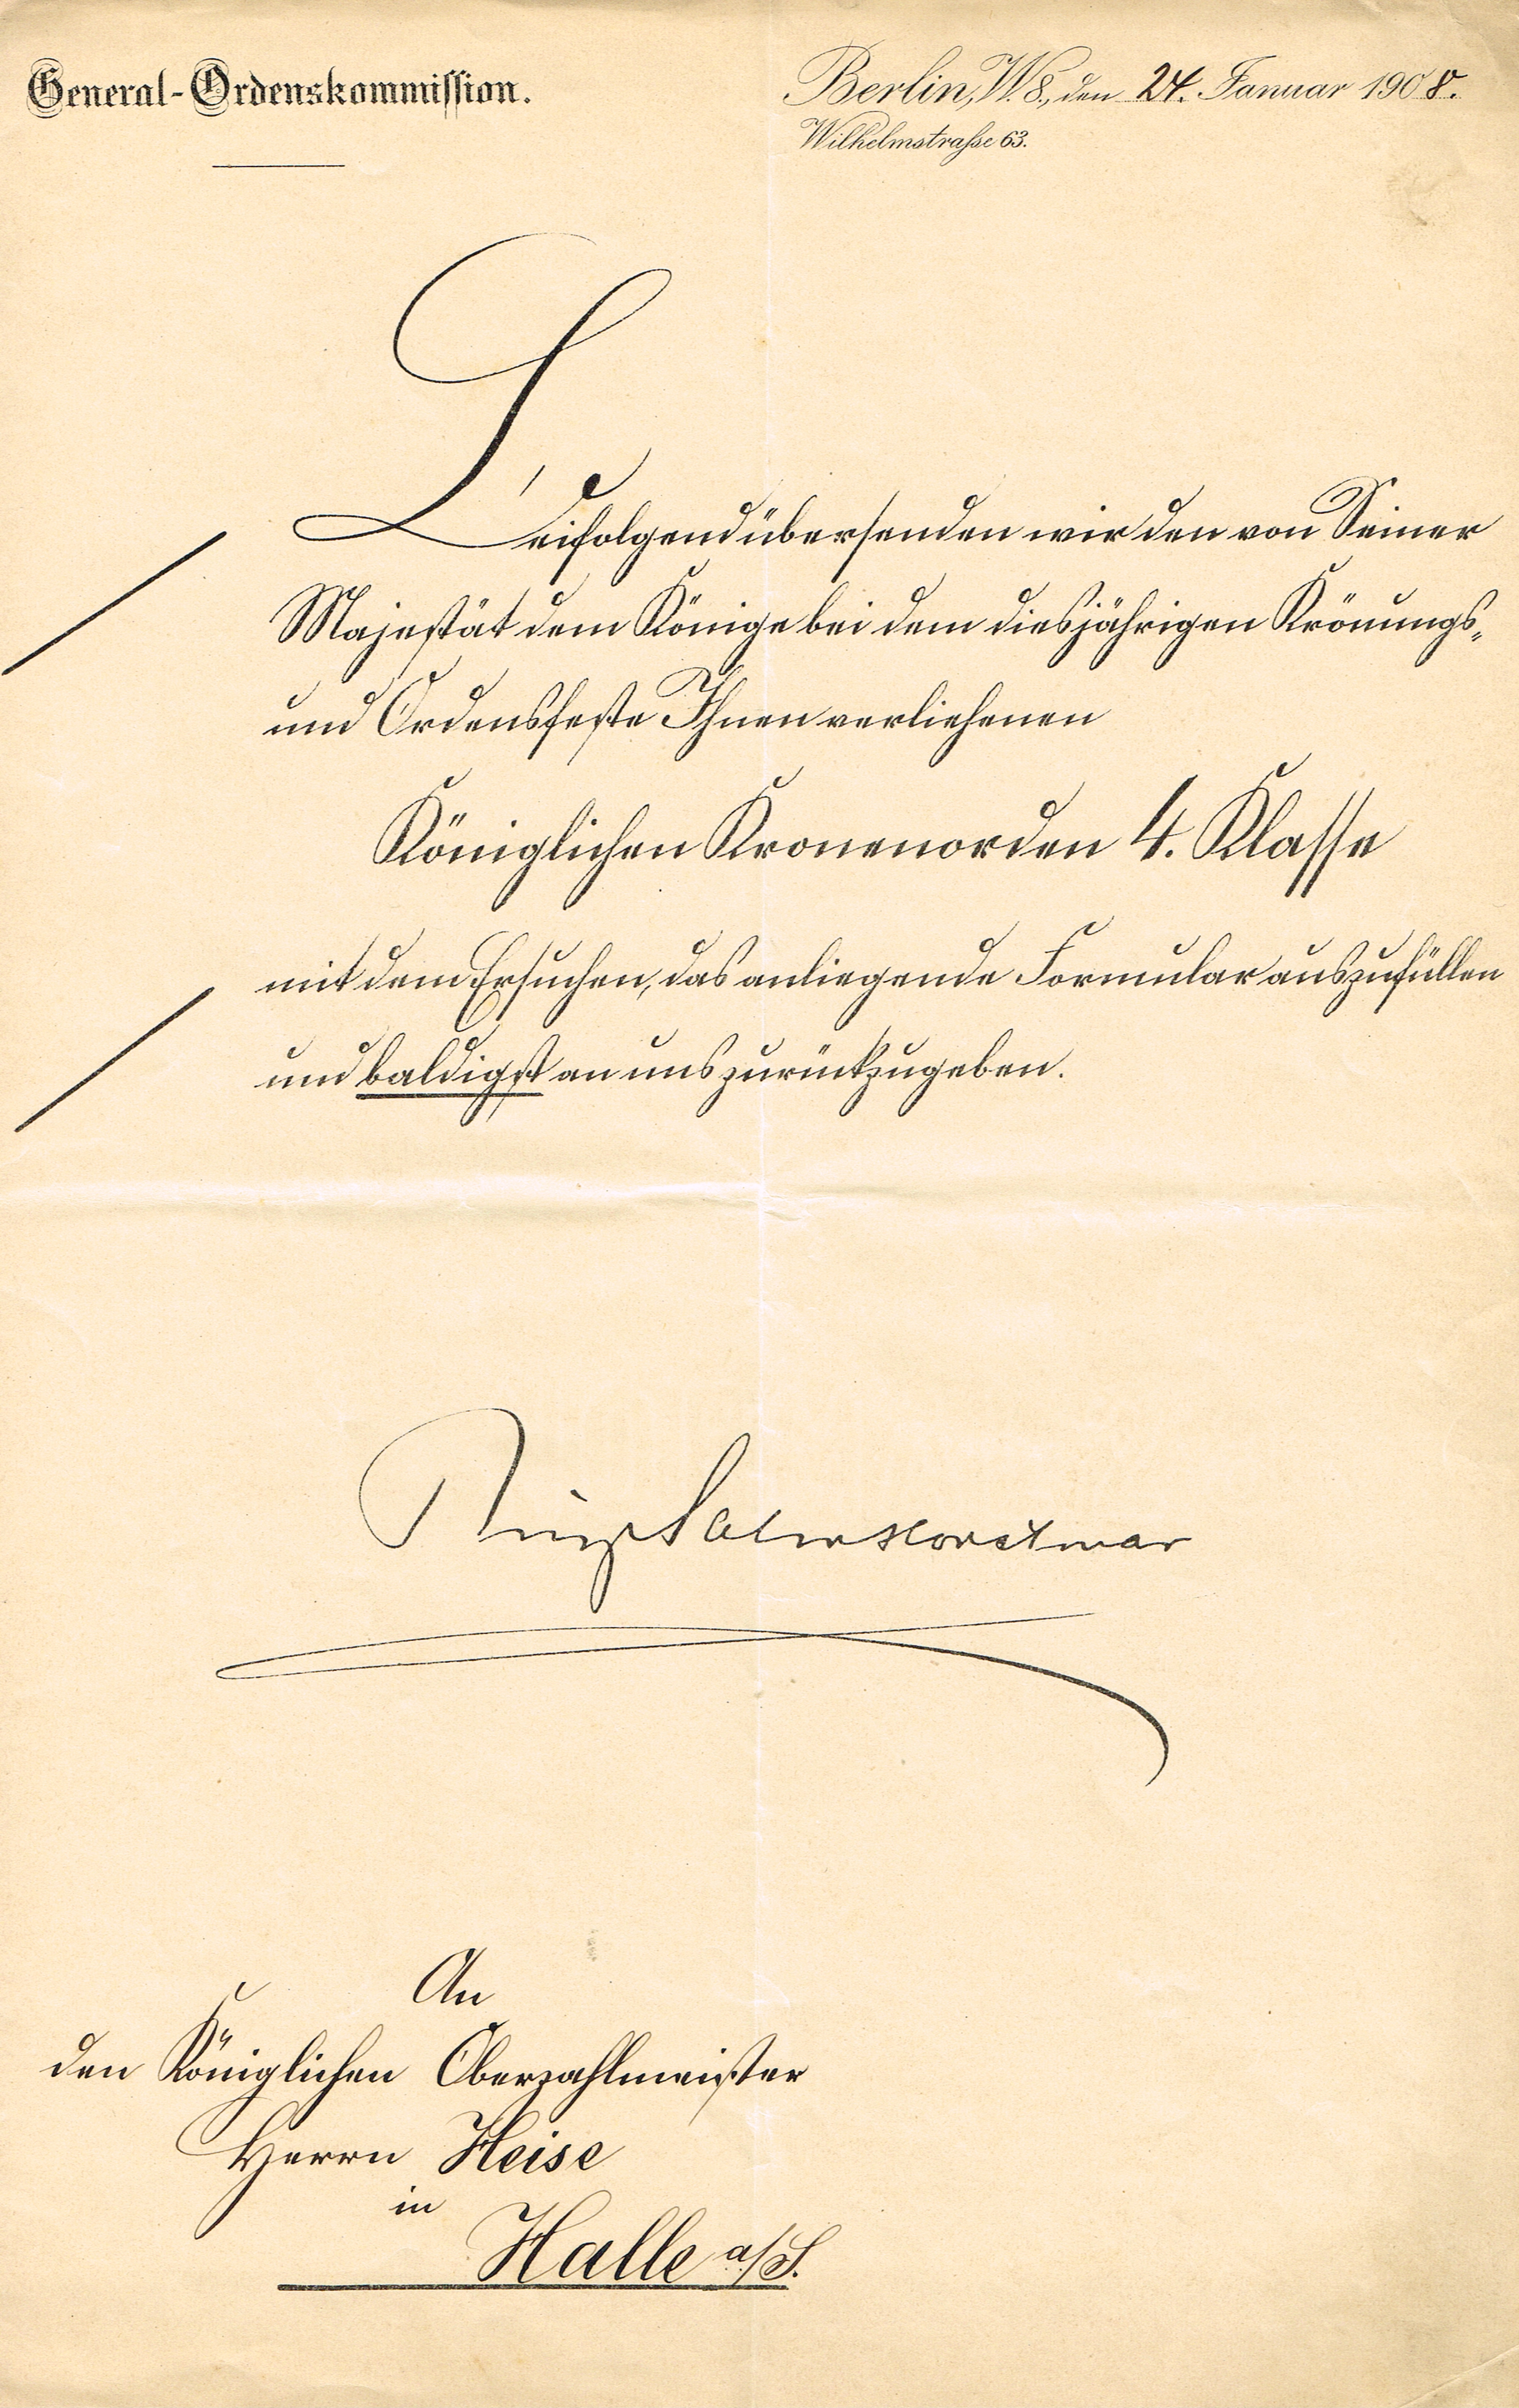 General-Ordenskommission.
Berlin, W. 8., den 24. Januar 1908.
Wilhelmstrasse 63.
Beifolgend übersenden wir den von Seiner
Majestät dem Könige bei dem diesjährigen Krönungs-
und Ordensfeste Ihnen verliehenen
Königlichen Kronenorden 4. Klasse
mit dem Ersuchen, das anliegende Formular auszufüllen
und baldigst an uns zurückzugeben.
Prinz Salm Horstmar
An
den Königlichen Oberzahlmeister
Herrn Heise
in
Halle a/S.